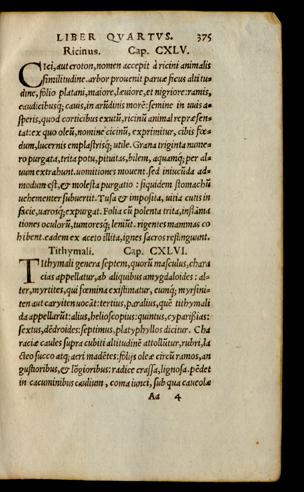 LIBER QVARTVS. 375
Ricinus. Cap. CXLV.
Cici, aut croton, nomen accepit à ricini animalis
similitudine. arbor prouenit paruæ ficus altitu-
dine, folio platani, maiore, læuiore, et nigriore: ramis,
caudicibusq; cauis, in arũdinis morẽ: semine in uuis a-
speris, quod corticibus exutũ, ricinũ animal repræsen-
tat: ex quo oleũ, nomine cicinũ, exprimitur, cibis fœ-
dum, lucernis emplastrisq; utile. Grana triginta nume-
ro purgata, trita potu, pituitas, bilem, aquamq; per al-
uum extrahunt. uomitiones mouent. sed iniucũda ad-
modum est, & molesta purgatio : siquidem stomachũ
uehementer subuertit. Tusa & imposita, uitia cutis in
facie, uarosq; expurgat. Folia cũ polenta trita, inflãma
tiones oculorũ, tumoresq; leniũt. rigentes mammas co
hibent. eadem ex aceto illita, ignes sacros restingunt.
Tithymali. Cap. CXLVI.
Tithymali genera septem, quorũ masculus, chara
cias appellatur, ab aliquibus amygdaloides : al-
ter, myrtites, qui fœmina existimatur, eumq; myrsini-
ten aut caryiten uocãt: tertius, paralius, quẽ tithymali
da appellarũt: alius, helioscopius: quintus, cyparißias:
sextus, dẽdroides: septimus, platyphyllos dicitur. Cha
raciæ caules supra cubiti altitudinẽ attollũtur, rubri, la
cteo succo atq; acri madẽtes: folijs oleæ circũ ramos, an
gustioribus, & lõgioribus: radice crassa, lignosa. pẽdet
in cacuminibus caulium, coma iunci, sub qua caueolæ
Aa 4